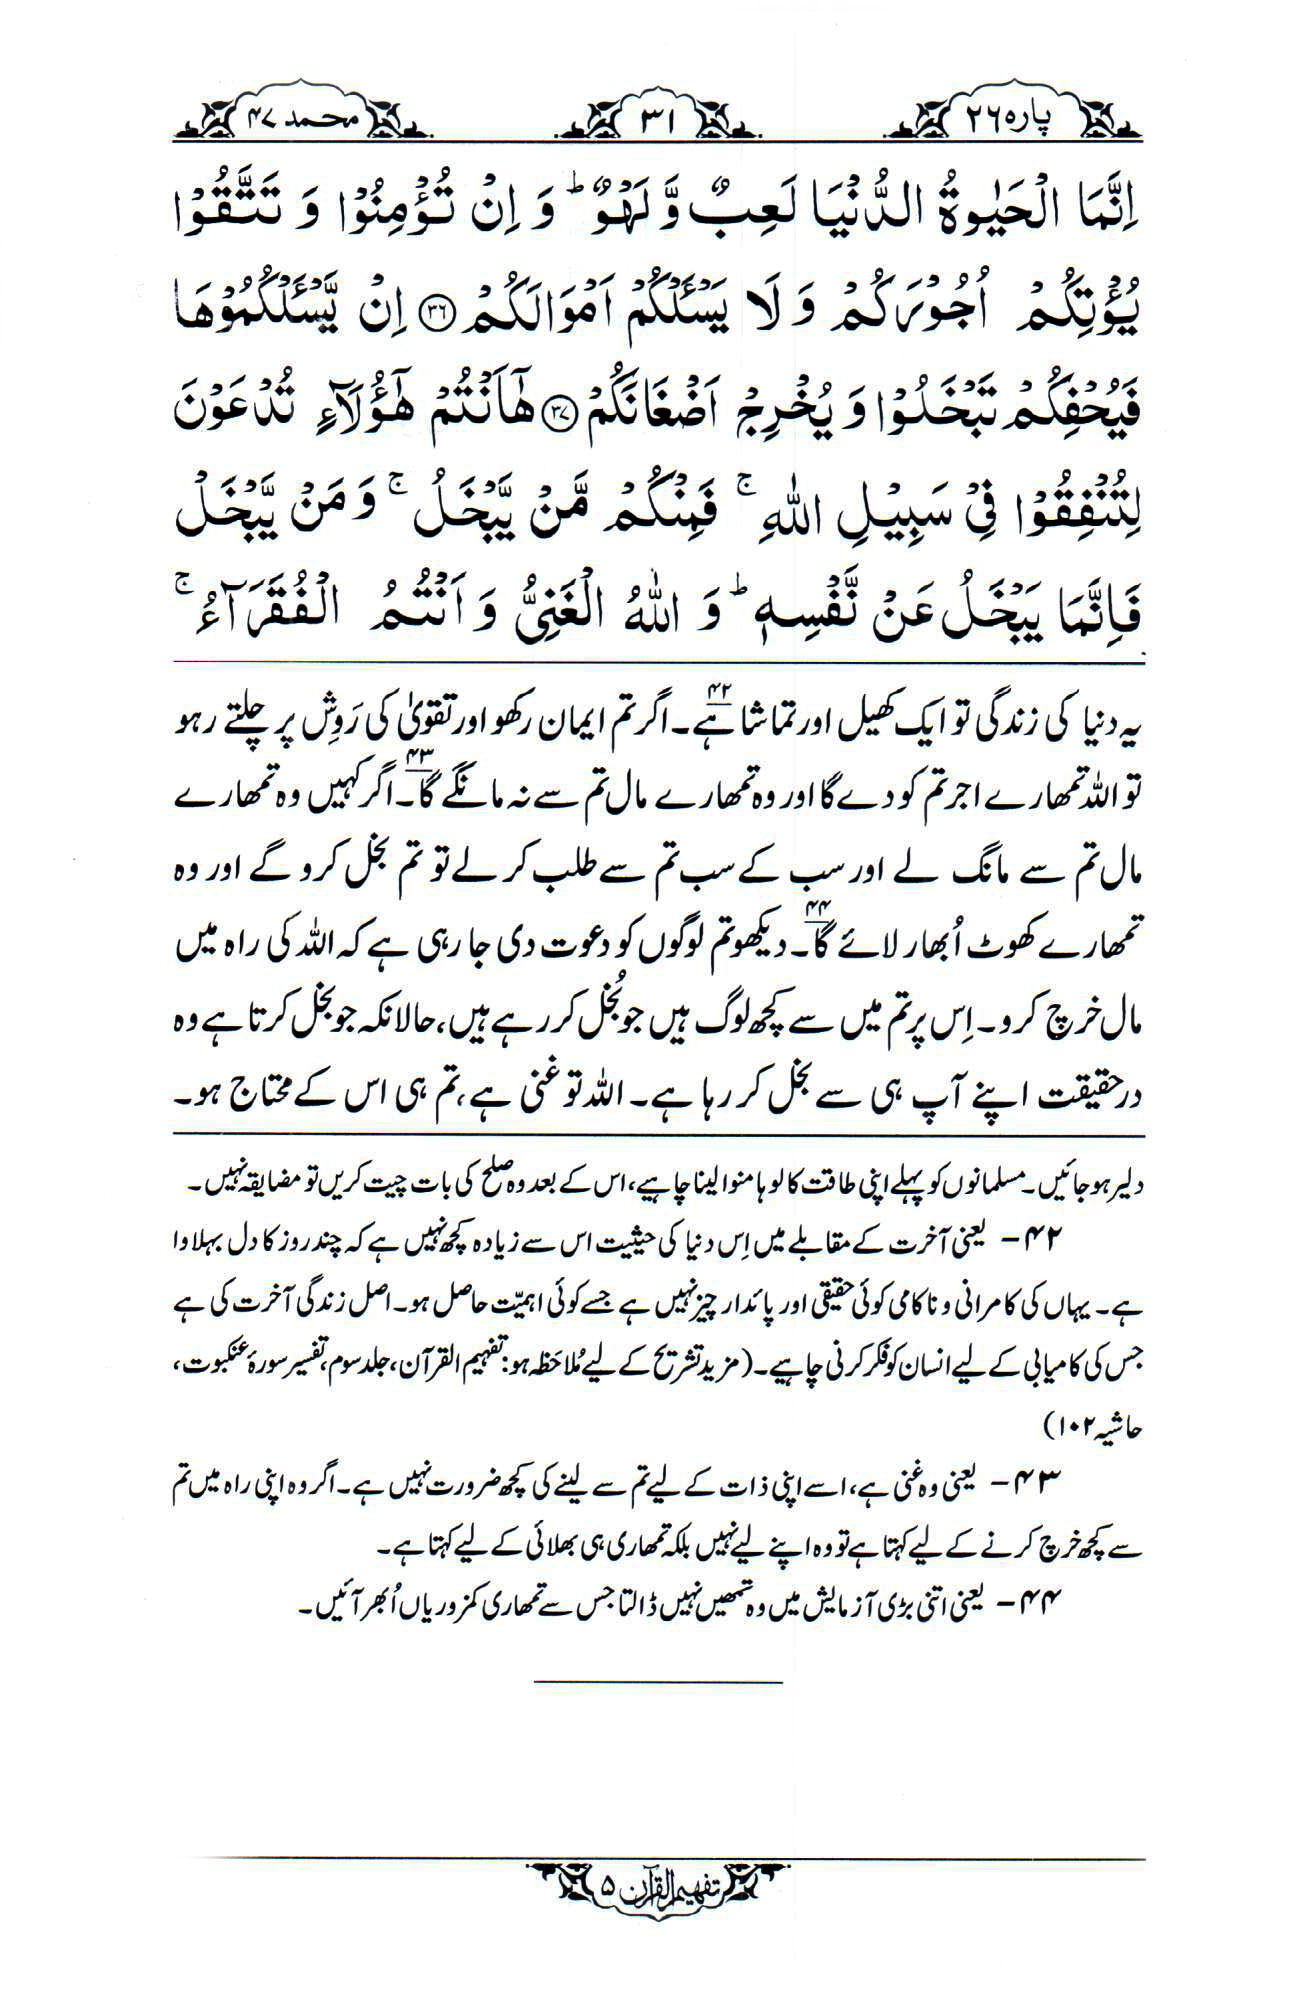 پارہ ۲۶
۳۱
محمد ۴۷
اِنَّمَا الْحَيٰوةُ الدُّنْيَا لَعِبٌ وَّ لَهْوٌ ؕ وَ اِنْ تُؤْمِنُوْا وَ تَتَّقُوْا
يُؤْتِكُمْ اُجُوْرَكُمْ وَ لَا يَسْـَٔلْكُمْ اَمْوَالَكُمْ ﴿۳۶﴾ اِنْ يَّسْـَٔلْكُمُوْهَا
فَيُحْفِكُمْ تَبْخَلُوْا وَ يُخْرِجْ اَضْغَانَكُمْ ﴿۳۷﴾ هٰۤاَنْتُمْ هٰۤؤُلَآءِ تُدْعَوْنَ
لِتُنْفِقُوْا فِيْ سَبِيْلِ اللّٰهِ ۚ فَمِنْكُمْ مَّنْ يَّبْخَلُ ۚ وَ مَنْ يَّبْخَلْ
فَاِنَّمَا يَبْخَلُ عَنْ نَّفْسِهٖ ؕ وَ اللّٰهُ الْغَنِيُّ وَ اَنْتُمُ الْفُقَرَآءُ ۚ
یہ دنیا کی زندگی تو ایک کھیل اور تماشا ہے۴۲۔ اگر تم ایمان رکھو اور تقویٰ کی رَوِش پر چلتے رہو
تو اللہ تمھارے اجر تم کو دے گا اور وہ تمھارے مال تم سے نہ مانگے گا۴۳۔ اگر کہیں وہ تمھارے
مال تم سے مانگ لے اور سب کے سب تم سے طلب کر لے تو تم بخل کرو گے اور وہ
تمھارے کھوٹ اُبھار لائے گا۴۴۔ دیکھو تم لوگوں کو دعوت دی جا رہی ہے کہ اللہ کی راہ میں
مال خرچ کرو۔ اِس پر تم میں سے کچھ لوگ ہیں جو بُخل کر رہے ہیں، حالانکہ جو بخل کرتا ہے وہ
درحقیقت اپنے آپ ہی سے بخل کر رہا ہے۔ اللہ تو غنی ہے، تم ہی اس کے محتاج ہو۔
دلیر ہو جائیں۔ مسلمانوں کو پہلے اپنی طاقت کا لوہا منوا لینا چاہیے، اس کے بعد وہ صلح کی بات چیت کریں تو مضایقہ نہیں۔
۴۲ – یعنی آخرت کے مقابلے میں اِس دنیا کی حیثیت اس سے زیادہ کچھ نہیں ہے کہ چند روز کا دل بہلاوا
ہے۔ یہاں کی کامرانی و ناکامی کوئی حقیقی اور پائدار چیز نہیں ہے جسے کوئی اہمیّت حاصل ہو۔ اصل زندگی آخرت کی ہے
جس کی کامیابی کے لیے انسان کو فکر کرنی چاہیے۔ (مزید تشریح کے لیے مُلاحَظہ ہو: تفہیم القرآن، جلد سوم، تفسیر سورۂ عنکبوت،
حاشیہ ۱۰۲)
۴۳ – یعنی وہ غنی ہے، اسے اپنی ذات کے لیے تم سے لینے کی کچھ ضرورت نہیں ہے۔ اگر وہ اپنی راہ میں تم
سے کچھ خرچ کرنے کے لیے کہتا ہے تو وہ اپنے لیے نہیں بلکہ تمھاری ہی بھلائی کے لیے کہتا ہے۔
۴۴ – یعنی اتنی بڑی آزمایش میں وہ تمھیں نہیں ڈالتا جس سے تمھاری کمزوریاں اُبھر آئیں۔
تفہیم القرآن ۵